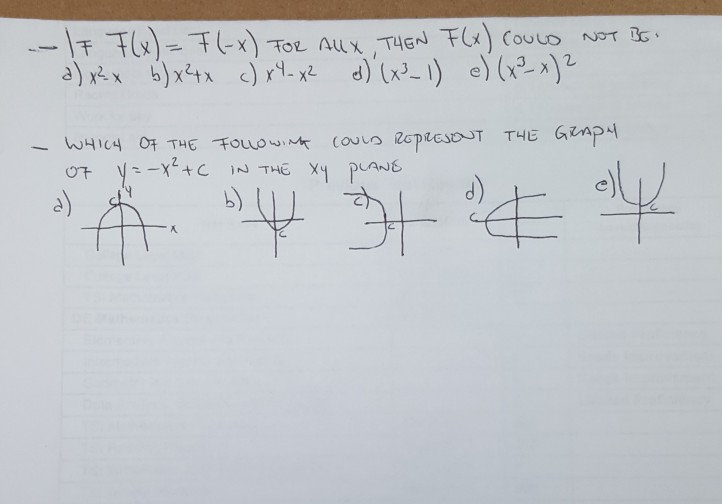 — IF F(x) = F(-x) FOR ALL X, THEN F(x) COULD NOT BE.
a) x²-x b) x²+x c) x⁴-x² d) (x³-1) e) (x³-x)²
- WHICH OF THE FOLLOWING COULD REPRESENT THE GRAPH
OF y = -x²+c IN THE XY PLANE
a) c y x b) c c) c d) c e) c